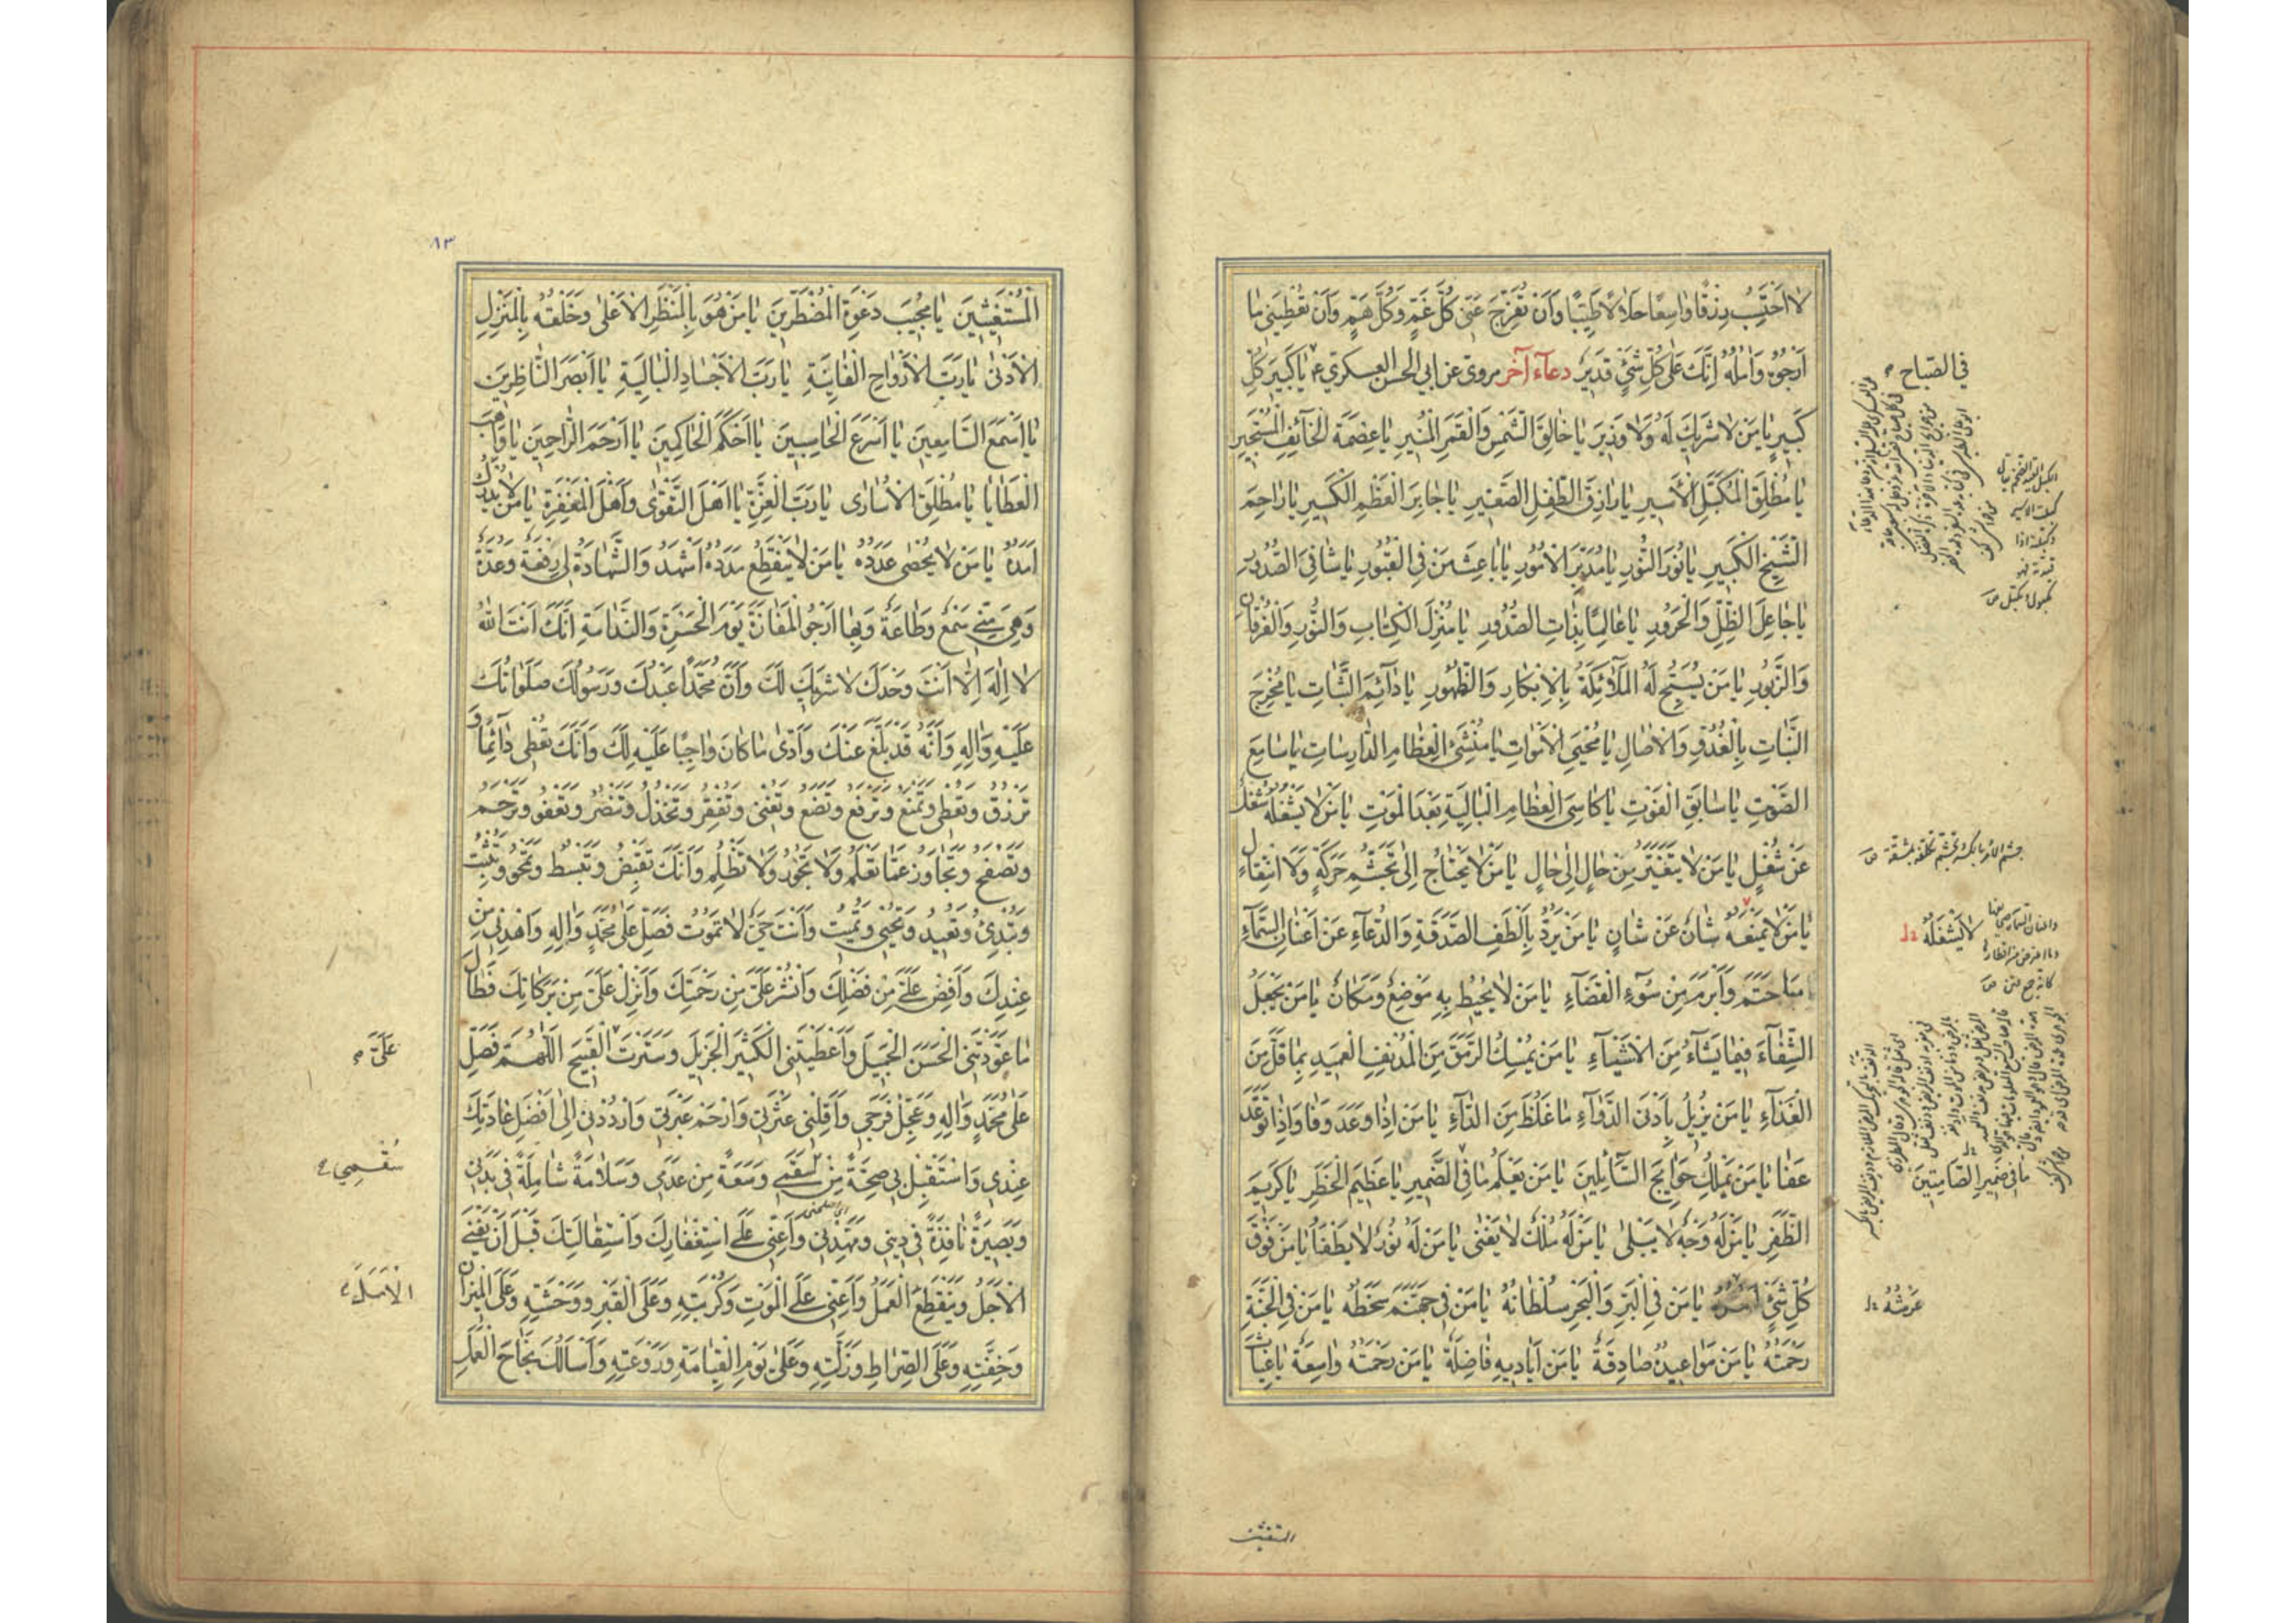 لا اَحْتَسِبُ رِزْقًا وَاسِعًا حَلَالًا طَيِّبًا وَاَنْ تُفَرِّجَ عَنّى كُلَّ غَمٍّ وَكُلَّ هَمٍّ وَاَنْ تُعْطِيَنى مَا
اَرْجُوهُ وَآمُلُهُ اِنَّكَ عَلى كُلِّ شَىْءٍ قَديرٌ دعاء آخر مروى عن ابي الحسن العسكري ع يَا كَبيرَ كُلِّ
كَبيرٍ يَا مَنْ لا شَريكَ لَهُ وَلا وَزيرَ يَا خَالِقَ الشَّمْسِ وَالْقَمَرِ الْمُنيرِ يَا عِصْمَةَ الْخَائِفِ الْمُسْتَجيرِ
يَا مُطْلِقَ الْمُكَبَّلِ الْاَسيرِ يَا رَازِقَ الطِّفْلِ الصَّغيرِ يَا جَابِرَ الْعَظْمِ الْكَسيرِ يَا رَاحِمَ
الشَّيْخِ الْكَبيرِ يَا نُورَ النُّورِ يَا مُدَبِّرَ الْاُمُورِ يَا بَاعِثَ مَنْ فِي الْقُبُورِ يَا شَافِيَ الصُّدُورِ
يَا جَاعِلَ الظِّلِّ وَالْحَرُورِ يَا عَالِمًا بِذَاتِ الصُّدُورِ يَا مُنْزِلَ الْكِتَابِ وَالنُّورِ وَالْفُرْقَانِ
وَالزَّبُورِ يَا مَنْ يُسَبِّحُ لَهُ الْمَلَائِكَةُ بِالْاِبْكَارِ وَالظُّهُورِ يَا دَائِمَ الثَّبَاتِ يَا مُخْرِجَ
النَّبَاتِ بِالْغُدُوِّ وَالْاصَالِ يَا مُحْيِيَ الْاَمْوَاتِ يَا مُنْشِئَ الْعِظَامِ الدَّارِسَاتِ يَا سَامِعَ
الصَّوْتِ يَا سَابِقَ الْفَوْتِ يَا كَاسِيَ الْعِظَامِ الْبَالِيَةِ بَعْدَ الْمَوْتِ يَا مَنْ لا يَشْغَلُهُ شُغْلٌ
عَنْ شُغْلٍ يَا مَنْ لا يَتَغَيَّرُ مِنْ حَالٍ اِلى حَالٍ يَا مَنْ لا يَحْتَاجُ اِلى تَجَشُّمِ حَرَكَةٍ وَلَا انْتِقَالٍ
يَا مَنْ لا يَمْنَعُهُ شَانٌ عَنْ شَانٍ يَا مَنْ يَرُدُّ بِاَلْطَفِ الصَّدَقَةِ وَالدُّعَاءِ عَنْ اَعْنَانِ السَّمَاءِ
مَا حَتَمَ وَاَبْرَمَ مِنْ سُوءِ الْقَضَاءِ يَا مَنْ لا يُحيطُ بِهِ مَوْضِعٌ وَمَكَانٌ يَا مَنْ يَجْعَلُ
الشِّفَاءَ فيمَا يَشَاءُ مِنَ الْاَشْيَاءِ يَا مَنْ يُمْسِكُ الرَّمَقَ مِنَ الْمُدْنِفِ الْعَميدِ بِمَا قَلَّ مِنَ
الْغَذَاءِ يَا مَنْ يُزيلُ بِاَدْنَى الدَّوَاءِ مَا غَلُظَ مِنَ الدَّاءِ يَا مَنْ اِذَا وَعَدَ وَفَا وَاِذَا تَوَعَّدَ
عَفَا يَا مَنْ يَمْلِكُ حَوَائِجَ السَّائِلينَ يَا مَنْ يَعْلَمُ مَا فِي الضَّميرِ يَا عَظيمَ الْخَطَرِ يَا كَريمَ
الظَّفَرِ يَا مَنْ لَهُ وَجْهٌ لا يَبْلى يَا مَنْ لَهُ مُلْكٌ لا يَفْنى يَا مَنْ لَهُ نُورٌ لا يَطْفَأُ يَا مَنْ فَوْقَ
كُلِّ شَىْءٍ اَمْرُهُ يَا مَنْ فِي الْبَرِّ وَالْبَحْرِ سُلْطَانُهُ يَا مَنْ في جَهَنَّمَ سَخَطُهُ يَا مَنْ فِي الْجَنَّةِ
رَحْمَتُهُ يَا مَنْ مَوَاعيدُهُ صَادِقَةٌ يَا مَنْ اَيَاديهِ فَاضِلَةٌ يَا مَنْ رَحْمَتُهُ وَاسِعَةٌ يَا غِيَاثَ
في الصّباح
لا يَشْغَلُهُ
مَا في ضَميرِ الصَّامِتينَ
عَرْشُهُ
المستغيثين
٨٣
الْمُسْتَغيثينَ يَا مُجيبَ دَعْوَةِ الْمُضْطَرّينَ يَا مَنْ هُوَ بِالْمَنْظَرِ الْاَعْلى وَخَلْقُهُ بِالْمَنْزِلِ
الْاَدْنى يَا رَبَّ الْاَرْوَاحِ الْفَانِيَةِ يَا رَبَّ الْاَجْسَادِ الْبَالِيَةِ يَا اَبْصَرَ النَّاظِرينَ
يَا اَسْمَعَ السَّامِعينَ يَا اَسْرَعَ الْحَاسِبينَ يَا اَحْكَمَ الْحَاكِمينَ يَا اَرْحَمَ الرَّاحِمينَ يَا وَاهِبَ
الْعَطَايَا يَا مُطْلِقَ الْاُسَارى يَا رَبَّ الْعِزَّةِ يَا اَهْلَ التَّقْوى وَاَهْلَ الْمَغْفِرَةِ يَا مَنْ لا يُدْرَكُ
اَمَدُهُ يَا مَنْ لا يُحْصى عَدَدُهُ يَا مَنْ لا يَنْقَطِعُ مَدَدُهُ اَشْهَدُ وَالشَّهَادَةُ لي رِفْعَةٌ وَعُدَّةٌ
وَهِيَ مِنّي سَمْعٌ وَطَاعَةٌ وَبِهَا اَرْجُو الْمَفَازَةَ يَوْمَ الْحَسْرَةِ وَالنَّدَامَةِ اِنَّكَ اَنْتَ اللهُ
لا اِلهَ اِلَّا اَنْتَ وَحْدَكَ لا شَريكَ لَكَ وَاَنَّ مُحَمَّدًا عَبْدُكَ وَرَسُولُكَ صَلَوَاتُكَ
عَلَيْهِ وَالِهِ وَاَنَّهُ قَدْ بَلَّغَ عَنْكَ وَاَدّى مَا كَانَ وَاجِبًا عَلَيْهِ لَكَ وَاَنَّكَ تُعْطي دَائِمًا وَ
تَرْزُقُ وَتُعْطي وَتَمْنَعُ وَتَرْفَعُ وَتَضَعُ وَتُغْني وَتُفْقِرُ وَتَخْذُلُ وَتَنْصُرُ وَتَعْفُو وَتَرْحَمُ
وَتَصْفَحُ وَتَجَاوَزُ عَمَّا تَعْلَمُ وَلا تَجُورُ وَلا تَظْلِمُ وَاَنَّكَ تَقْبِضُ وَتَبْسُطُ وَتَمْحُو وَتُثْبِتُ
وَتُبْدِئُ وَتُعيدُ وَتُحْيي وَتُميتُ وَاَنْتَ حَيٌّ لا تَمُوتُ فَصَلِّ عَلى مُحَمَّدٍ وَالِهِ وَاهْدِني مِنْ
عِنْدِكَ وَاَفِضْ عَلَيَّ مِنْ فَضْلِكَ وَانْشُرْ عَلَيَّ مِنْ رَحْمَتِكَ وَاَنْزِلْ عَلَيَّ مِنْ بَرَكَاتِكَ فَطَالَ
مَا عَوَّدْتَنِي الْحَسَنَ الْجَميلَ وَاَعْطَيْتَنِي الْكَثيرَ الْجَزيلَ وَسَتَرْتَ الْقَبيحَ اَللّهُمَّ فَصَلِّ
عَلى مُحَمَّدٍ وَالِهِ وَعَجِّلْ فَرَجي وَاَقِلْني عَثْرَتي وَارْحَمْ عَبْرَتي وَارْدُدْني اِلى اَفْضَلِ عَادَتِكَ
عِنْدي وَاسْتَقْبِلْ بي صِحَّةً مِنْ سَقَمي وَسَعَةً مِنْ عَدَمي وَسَلَامَةً شَامِلَةً في بَدَني
وَبَصيرَةً نَافِذَةً في ديني وَمَهِّدْني وَاَعِنّي عَلَى اسْتِغْفَارِكَ وَاسْتِقَالَتِكَ قَبْلَ اَنْ يَفْنَى
الْاَجَلُ وَيَنْقَطِعَ الْعَمَلُ وَاَعِنّي عَلَى الْمَوْتِ وَكُرْبَتِهِ وَعَلَى الْقَبْرِ وَوَحْشَتِهِ وَعَلَى الْميزَانِ
وَخِفَّتِهِ وَعَلَى الصِّرَاطِ وَزَلَّتِهِ وَعَلى يَوْمِ الْقِيَامَةِ وَرَوْعَتِهِ وَاَسْاَلُكَ نَجَاحَ الْعَمَلِ
عَلَيَّ
سُقْمي
الْاَمَلُ